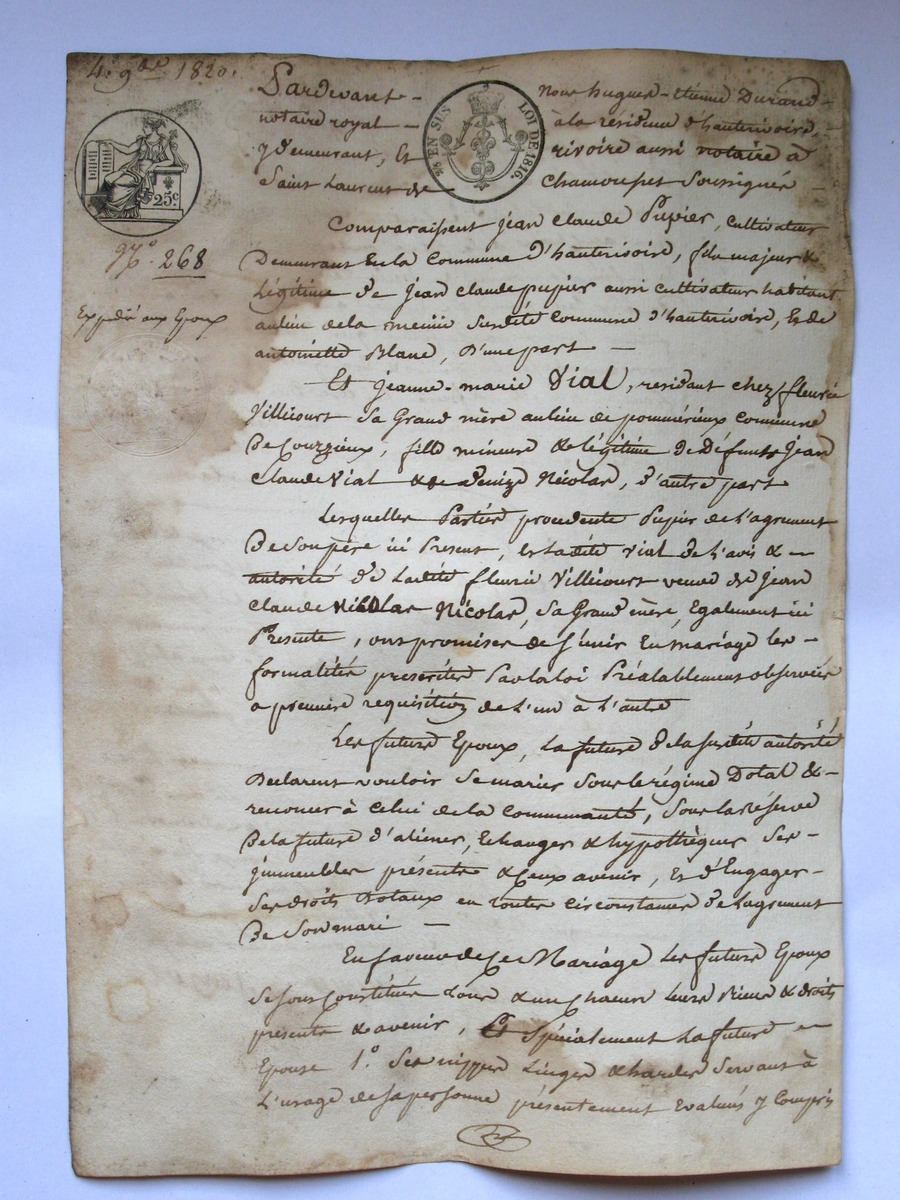 4. 9bre 1820.
Pardevant - Nous hugues-Etienne Durand -
notaire royal - à la résidence d'hauterivoire,
y demeurant, Et rivoire aussi notaire à
Saint Laurent de - chamousset Soussignés
¼ EN SUS LOI DE 1816.
25c
No. 268
Expédié aux Epoux
Comparaissent Jean Claude Pupier, cultivateur
Demeurant En la Commune d'hauterivoire, fils majeur &
Légitime de Jean Claude pupier aussi cultivateur habitant
au lieu de la même Susdite Commune d'hauterivoire, Et de
antoinette Blanc, D'une part —
Et Jeanne-marie Vial, résidant chez fleurie
Villecourt Sa Grand mère au lieu de pommérieux commune
De Courzieux, fille mineure & légitime de Défunts Jean
Claude Vial & de denize Nicolas, d'autre part
Lesquelles Parties procedente Pupier de l'agrement
De Son père ici Present, Et Ladite Vial de l'avis & -
autorité de Ladite fleurie Villecourt veuve de Jean
Claude Nicolas, Sa Grand mère, Egalement ici
Presente, ont promises de S'unir En mariage les -
formalités prescrites Par la loi Préalablement observées
a premiere requisition de l'un à l'autre
Les futurs Epoux, La future de la susdite autorité
Déclarent vouloir Se marier Sous le régime Dotal & -
renoncer à Celui de la Communauté, Sous la Réserve
De la future d'aliener, Echanger & hypothèquer Ses -
jmmeubles présents & Ceux avenir, Et d'Engager -
Ses droits Dotaux en toutes circonstances de l'agrement
De Son mari —
En faveur de Ce Mariage Les futurs Epoux
Se Sont Constitués tous & un chacun leurs Biens & droits
présents & avenir, Et Spécialement La future -
Epouse 1o. Ses nippes Linges & hardes Servant à
L'usage de Sa personne présentement Evalués y Compris